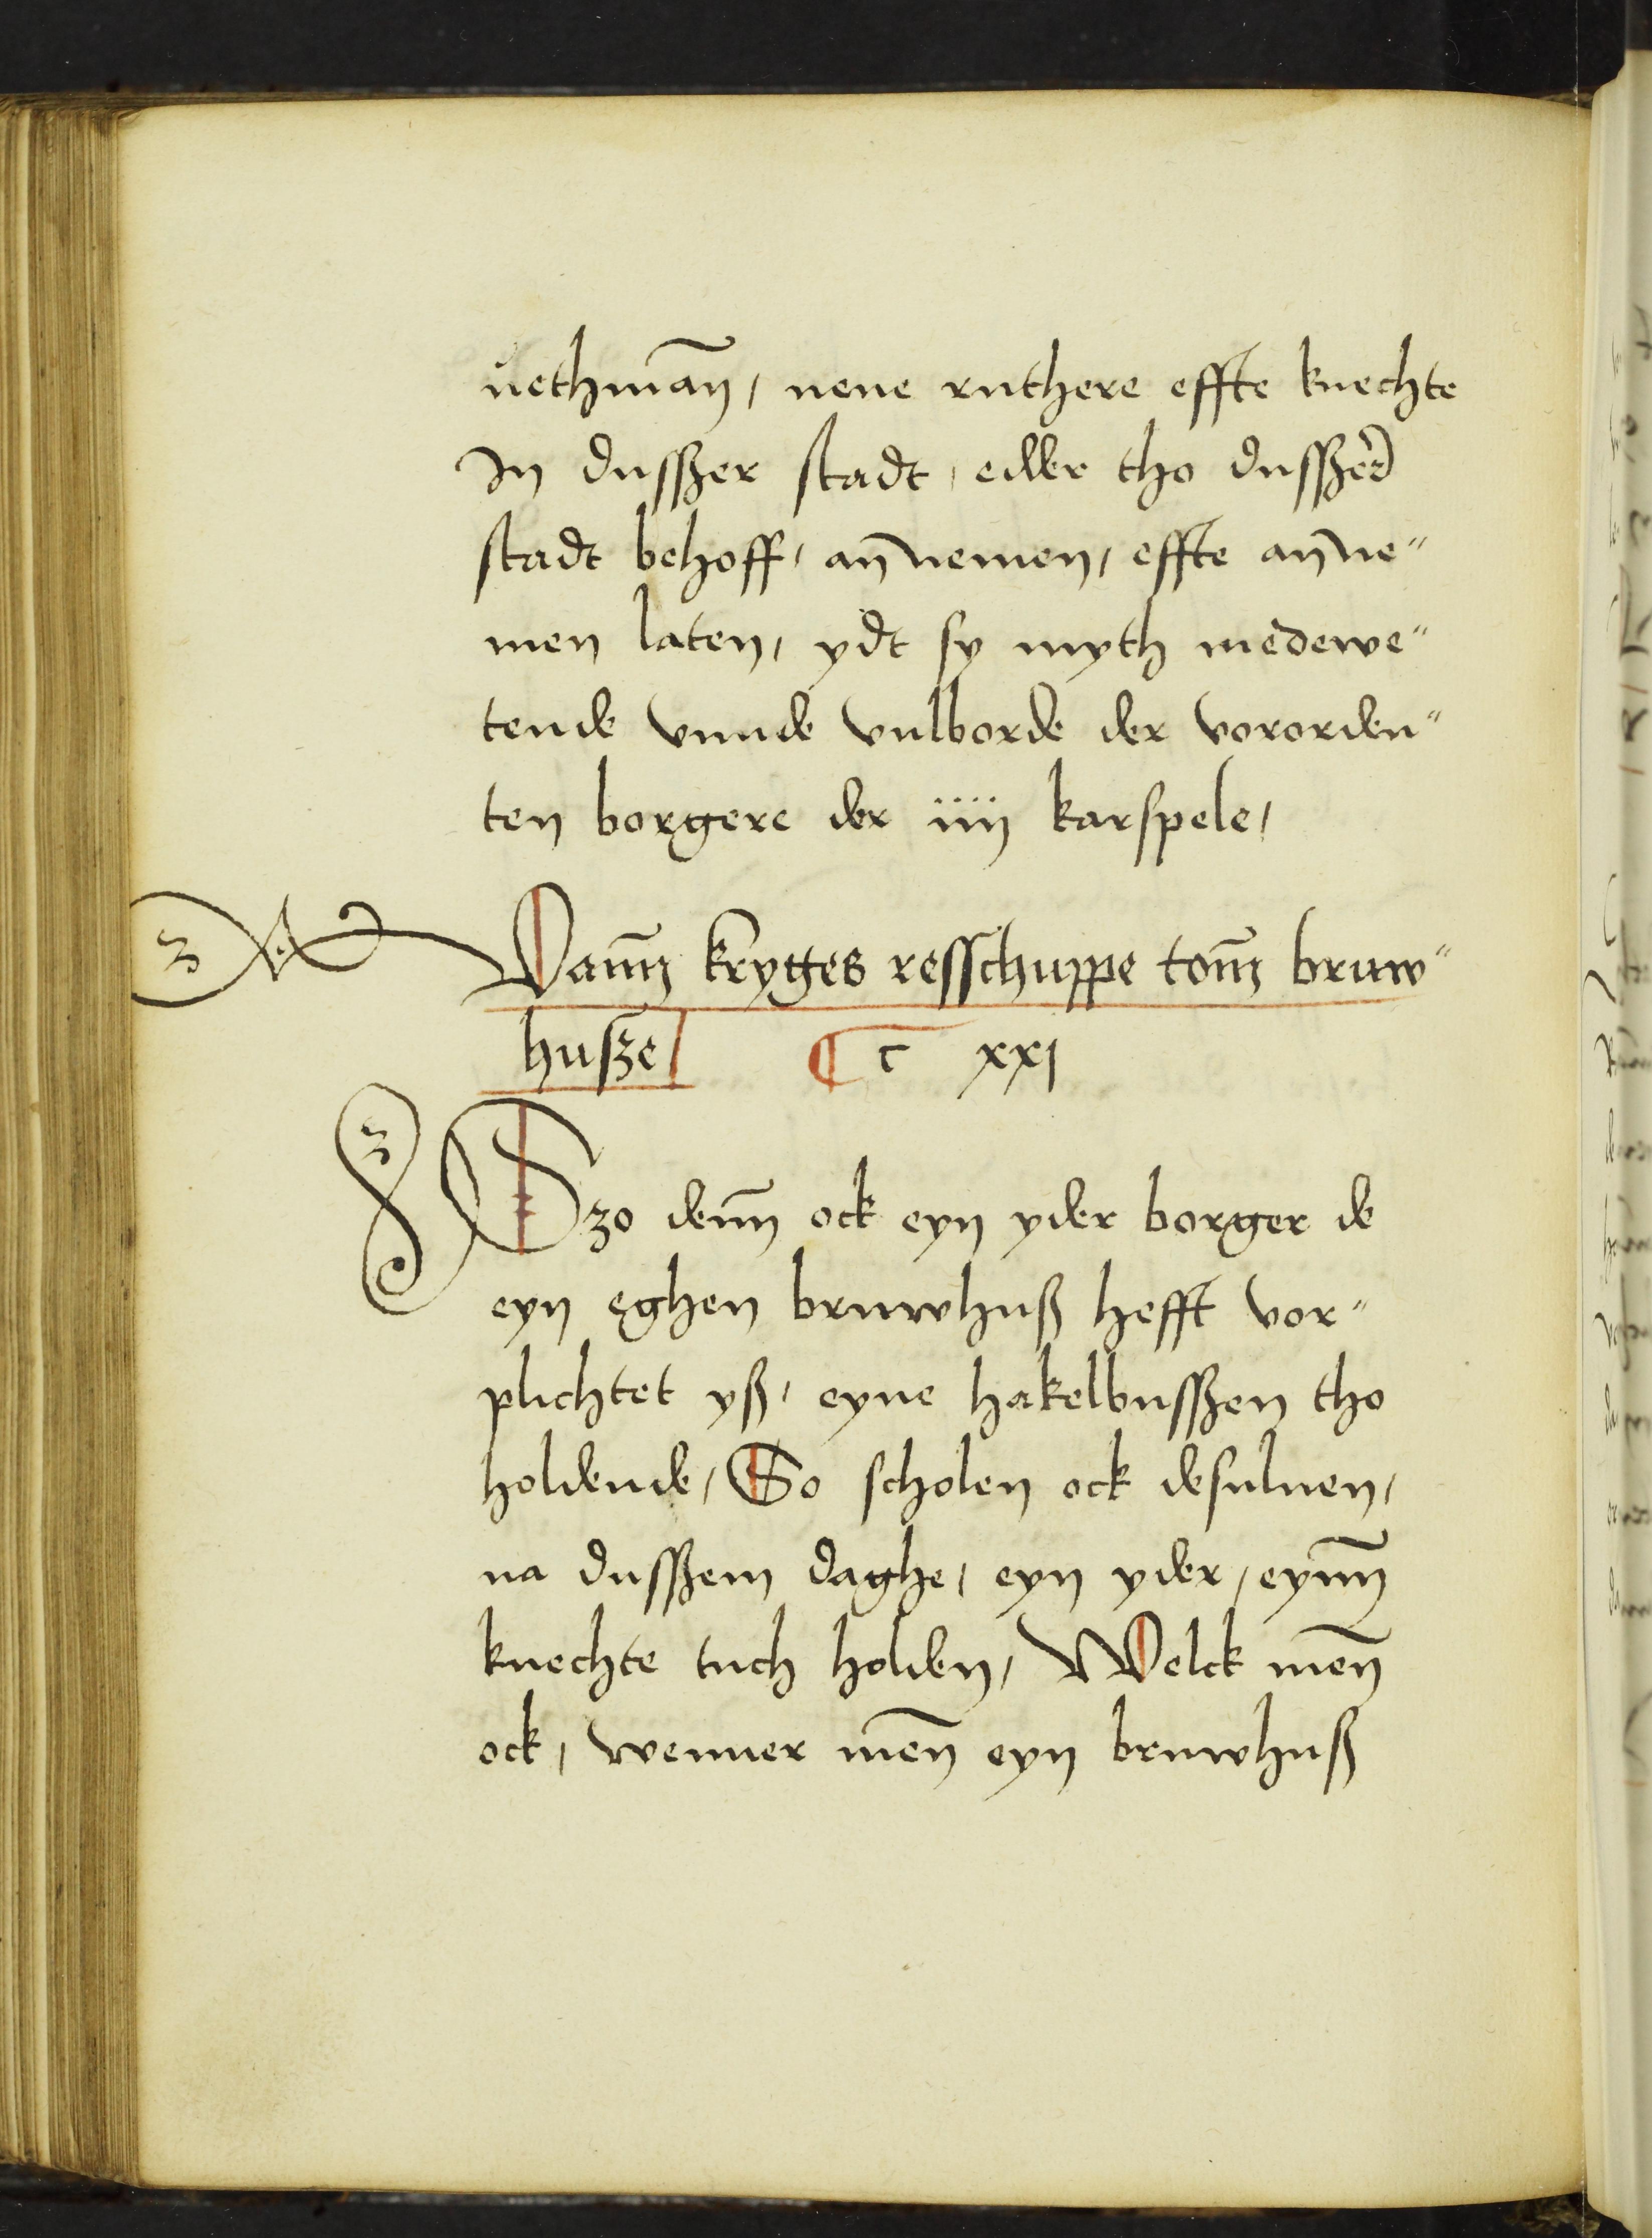 vethman̄, nene ruthere effte knechte
In dusszer stadt, edder tho dusszer
stadt behoff, an nemen, effte an ne„
men laten, ydt sy myth medewe„
tende vnnde vulborde der vororden„
ten borgere der iiij karspele,
Vann̄ kryges resschuppe tom̄ bruw„
husze
¶ c xxj
Szo denn̄ ock eyn yder borger de
eyn eghen bruwhuß hefft vor„
plichtet yß, eyne hakelbusszen tho
holdende, So scholen ock desuluen,
na dusszem daghe, eyn yder, eynn̄
knechte tuch holden, Welck men̄
ock, wenner men̄ eyn bruwhuß